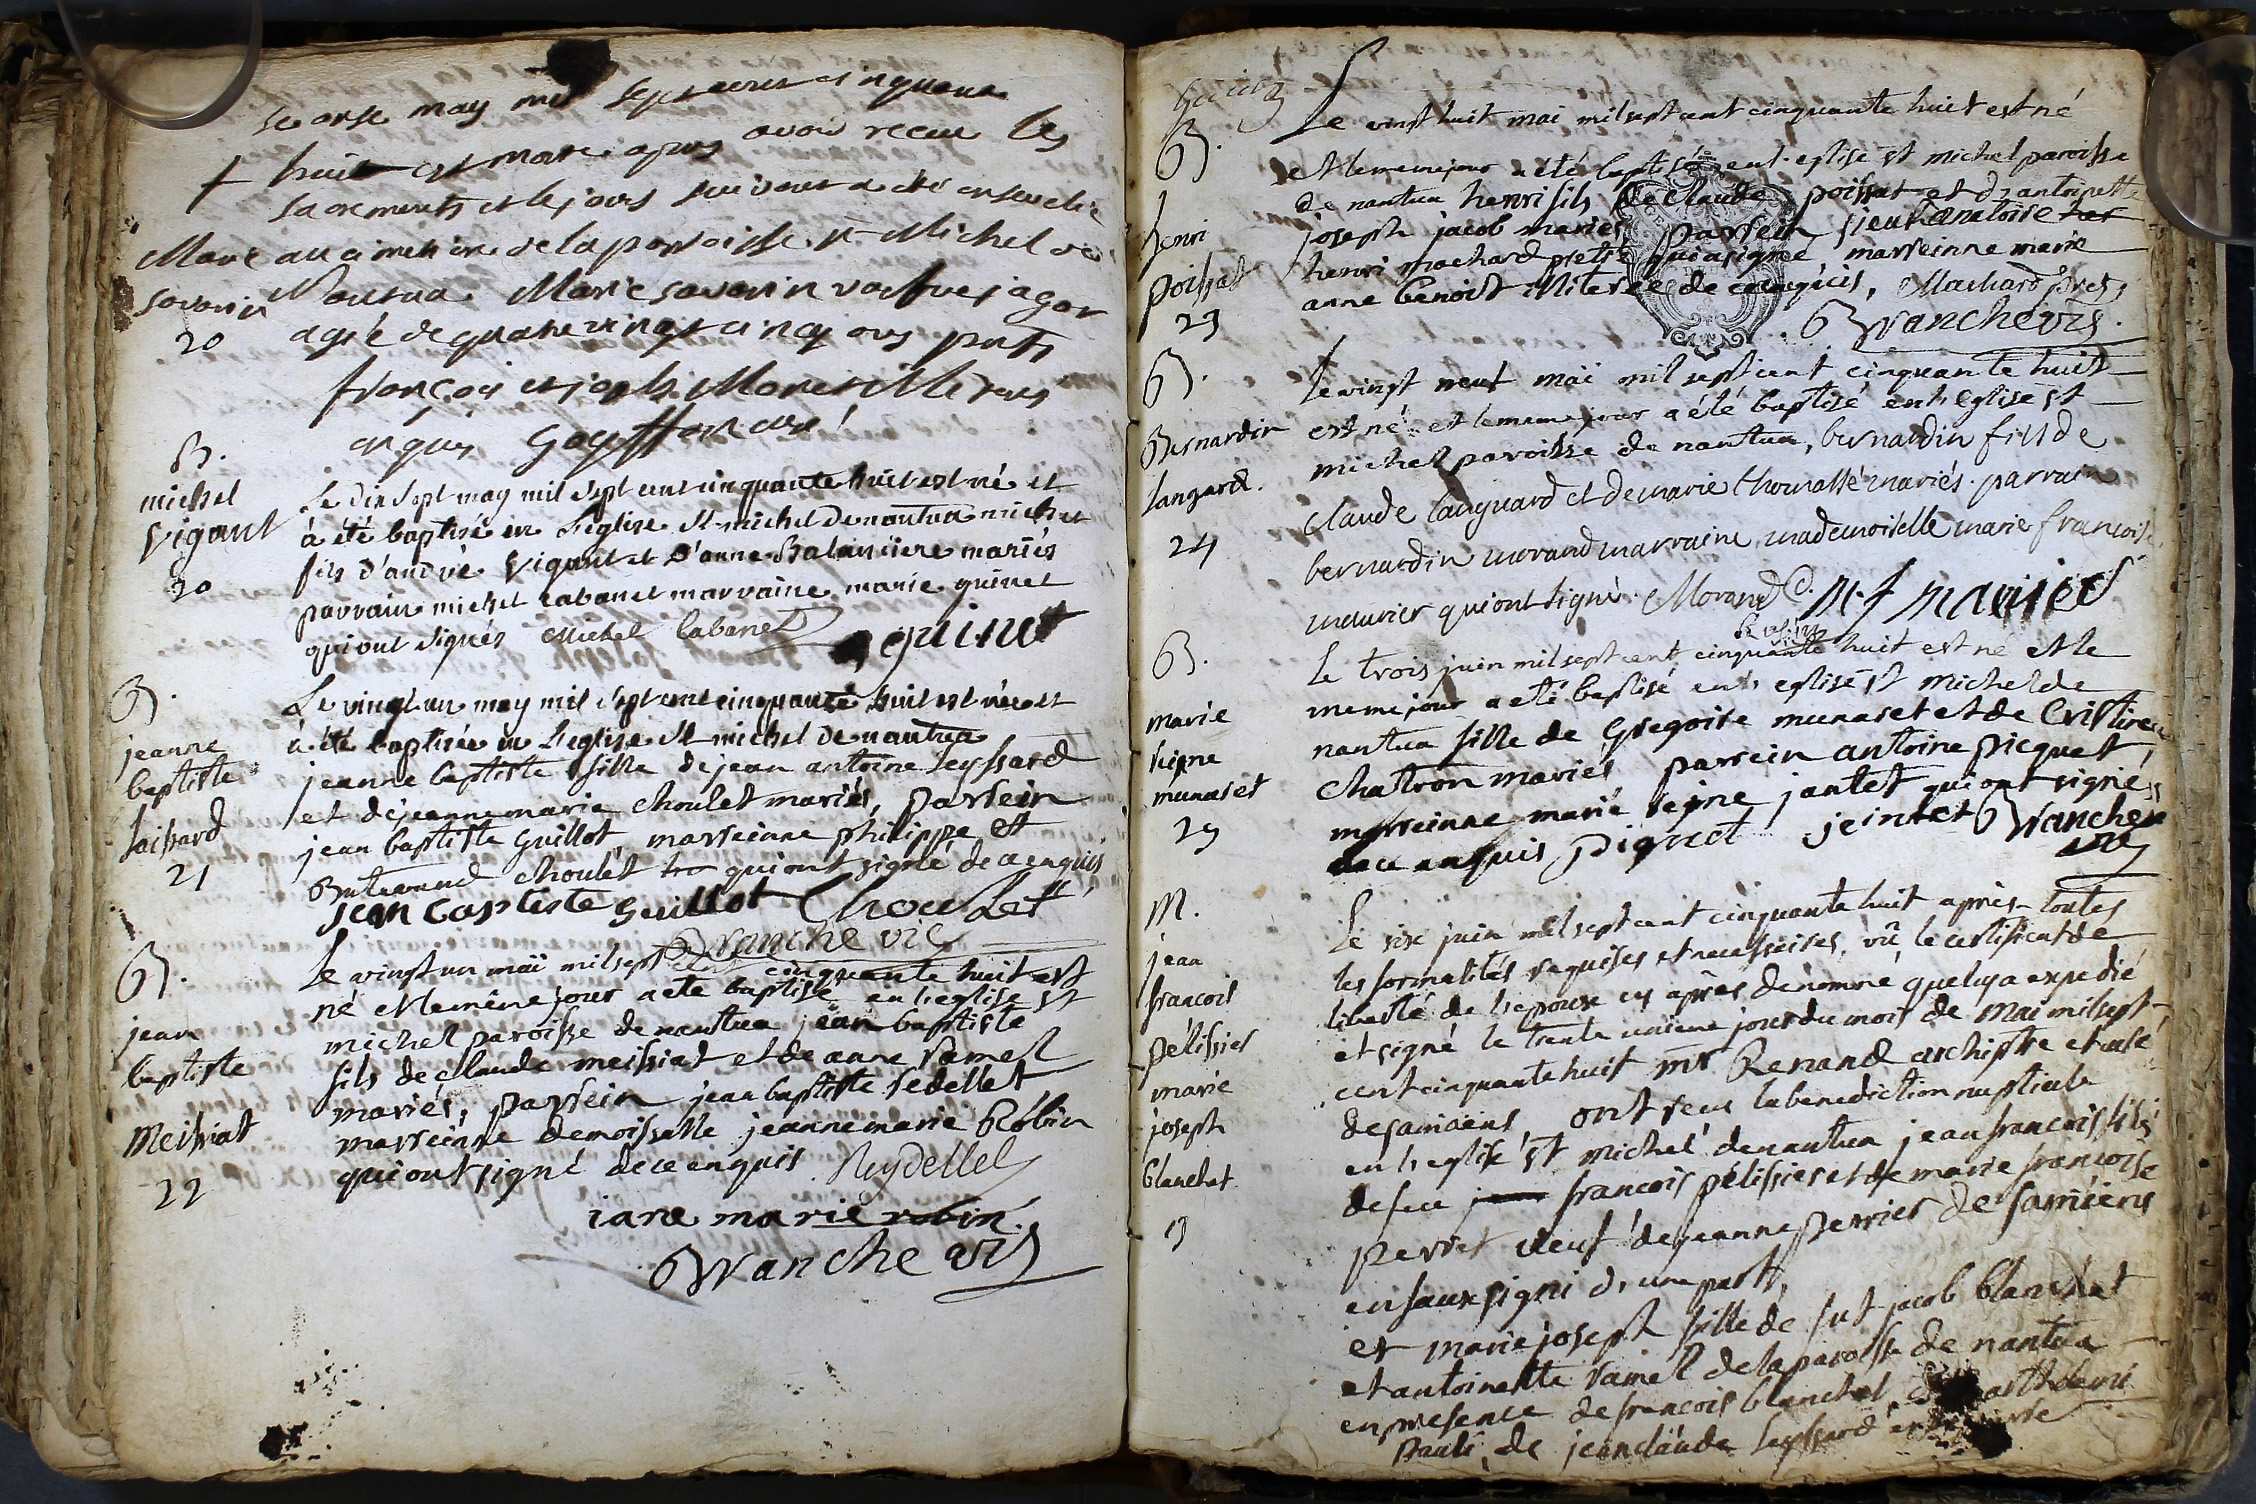 Le onse may mil sept cens cinquante
huit est morte apres avoir receu les
sacrements et le jours suivant a été ensevelie
au cimetiere de la parroisse st Michel de
Nantua Marie savarin vaefve jagor
agée de quatre vingt cinq ans pnts
françois et joseph Maneville
enquis Goyffon curé
†
Marie
savarin
20
B.
michel
Vigant
20
Le dix sept may mil sept cent cinquante huit est né et
à été baptisé en L'eglise st michel de nantua michel
fils d'andré Vigant et D'anne Balanciere mariés
parrain michel Cabanet marraine marie quinet
qui ont signés Michel Cabanet
quinet
B.
jeanne
baptiste
laissard
21
Le vingt un may mil sept cent cinquante huit est née et
à été baptisée en L'eglise st michel de nantua
jeanne baptiste fille de jean antoine leyssard
et de jeanne marie choulet mariés, parrein
jean baptiste Guillot, marreinne philippe et
choulet qui ont signé de ce enquis
jean baptiste Guillot Choulet
Branche vic
B.
jean
baptiste
Meissiat
22
Le vingt un maï mil sept cent cinquante huit est
né et le même jour a ete baptisé en l'eglise st
michel paroisse de nantua jean baptiste
fils de claude meissiat et de anne ramel
mariés, parrein jean baptiste redellet
marreinne demoisselle jeanne marie Robin
qui ont signé de ce enquis Reydellet
iane marie robin
Branche vic
B.
henri
poissat
23
Le vingt huit mai mil sept cent cinquante huit est né
et le meme jour a été baptisé en l'eglise st michel paroisse
de nantua henri fils de Claude poissat et d'antoinette
joseph jacob mariés parrein sieur
henri machard pretre qui a signé, marreinne marie
anne benoist illiterée de ce enquis, Machard ptre,
Branche vic
B.
Bernardin
langard.
24
Le vingt neuf maï mil sept cent cinquante huit
est né et le meme jour a été baptisé en l'eglise st
michel paroisse de nantua, bernardin fils de
Claude languard et de marie Chomassé mariés. parrain
bernardin morand marraine mademoiselle marie francoise
meurier qui ont signé. Morand
B.
marie
reine
munaret
25
Le trois juin mil sept cent cinquante huit est né et le
meme jour a eté baptisé en l'eglise st michel de
nantua fille de Gregoire munaret et de Cristine
chatron mariés parrein antoine picquet
marreinne marie rejne jantet qui ont signés
de ce enquis piquet jeintet Branche
vic
M.
jean
francois
pélissier
marie
joseph
blanchet
9
Le six juin mil sept cent cinquante huit après toutes
les formalités requises et necessaires, vû le certificat de
liberté de l'epouse cy après denommé queluy a expedié
et signé le trente unieme jour du mois de mai mil sept
cent cinquante huit mr Renand archiptre et curé
de samoëns, ont reçu la benediction nuptiale
en l'eglise st michel de nantua jean francois fils
de feu francois pélissier et de marie francoise
perret veuf de jeanne perrier de samoens
en faussigni d'une part,
et marie joseph fille de fut jacob blanchet
et antoinette ramel de la paroisse de nantua
en presence de francois blanchet, de
pauli, de jean claude leyssard et